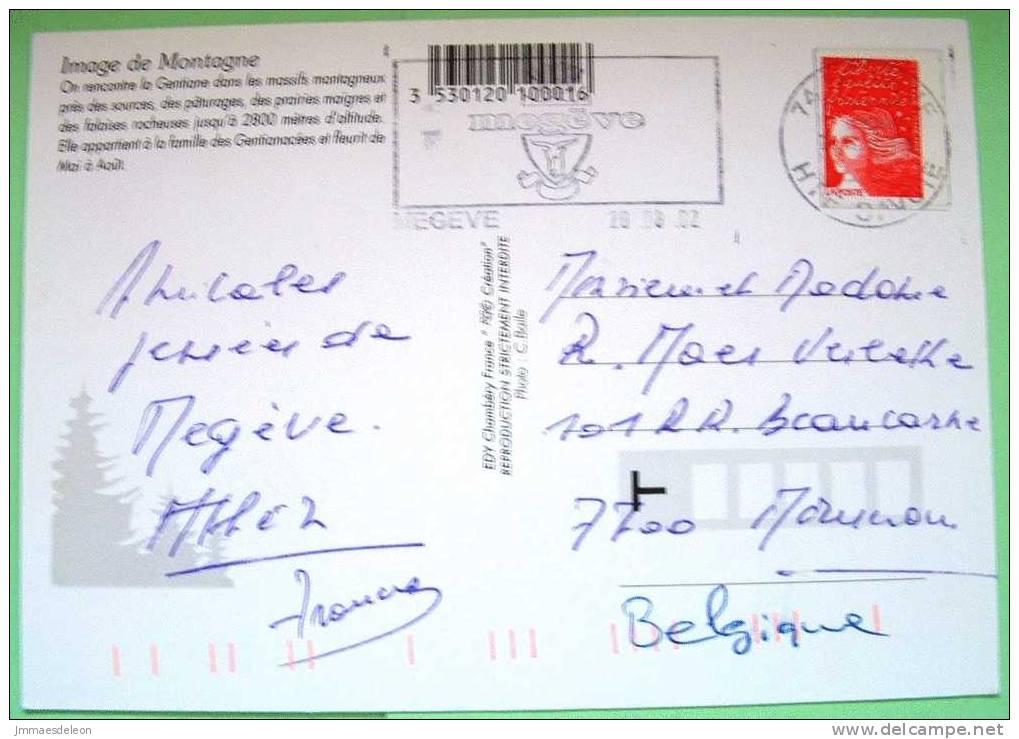 Image de Montagne
On rencontre la Gentiane dans les massifs montagneux
près des sources, des pâturages, des prairies maigres et
des falaises rocheuses jusqu'à 2800 mètres d'altitude.
Elle appartient à la famille des Gentianacées et fleurit de
Mai à Août.
3 530120 100016
megève
MEGEVE 20 08 02
74
LA POSTE
Amicales
pensées de
Megève.
EDY Chambéry France
Création
REPRODUCTION STRICTEMENT INTERDITE
Photo : C. Baile
Monsieur et Madame
R. Maes
101 Beaucarne
7700 Mouscron
Belgique
T
jmmaesdeleon
www.delcampe.net